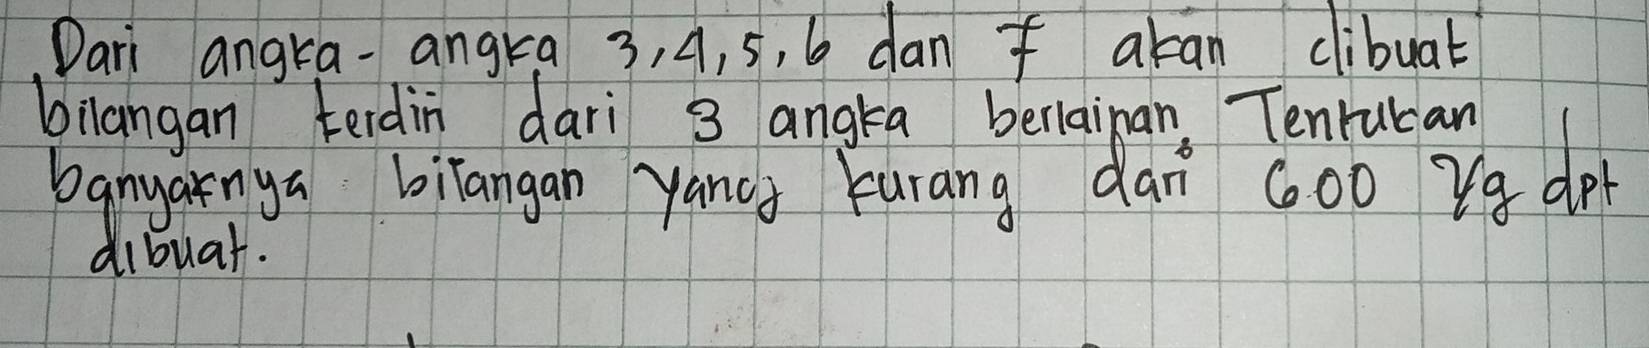 Dari angka-angka 3, 4, 5, 6 dan 7 akan dibuat
bilangan terdiri dari 3 angka berlainan. Tentukan
banyaknya bilangan yang kurang dari 600 yg dpt
dibuat.